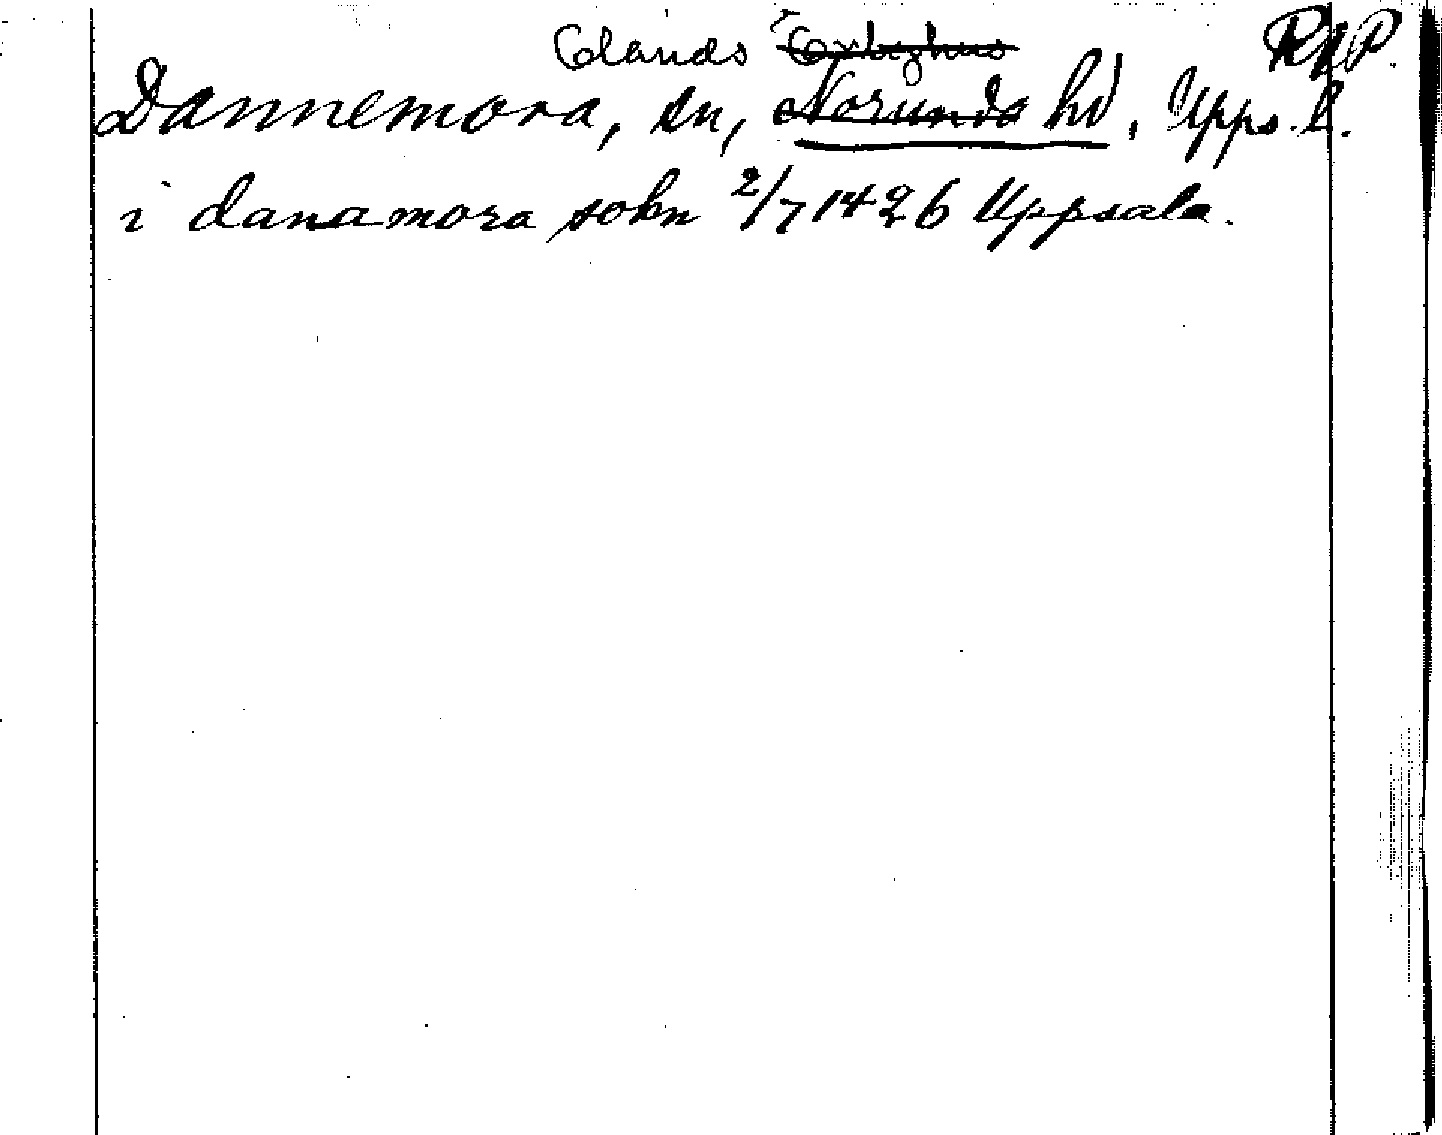 Olands Örbyhus RAP.
Dannemora, sn, Norunda hd, Upps. l.
i danamora sokn 2/7 1426 Uppsala.